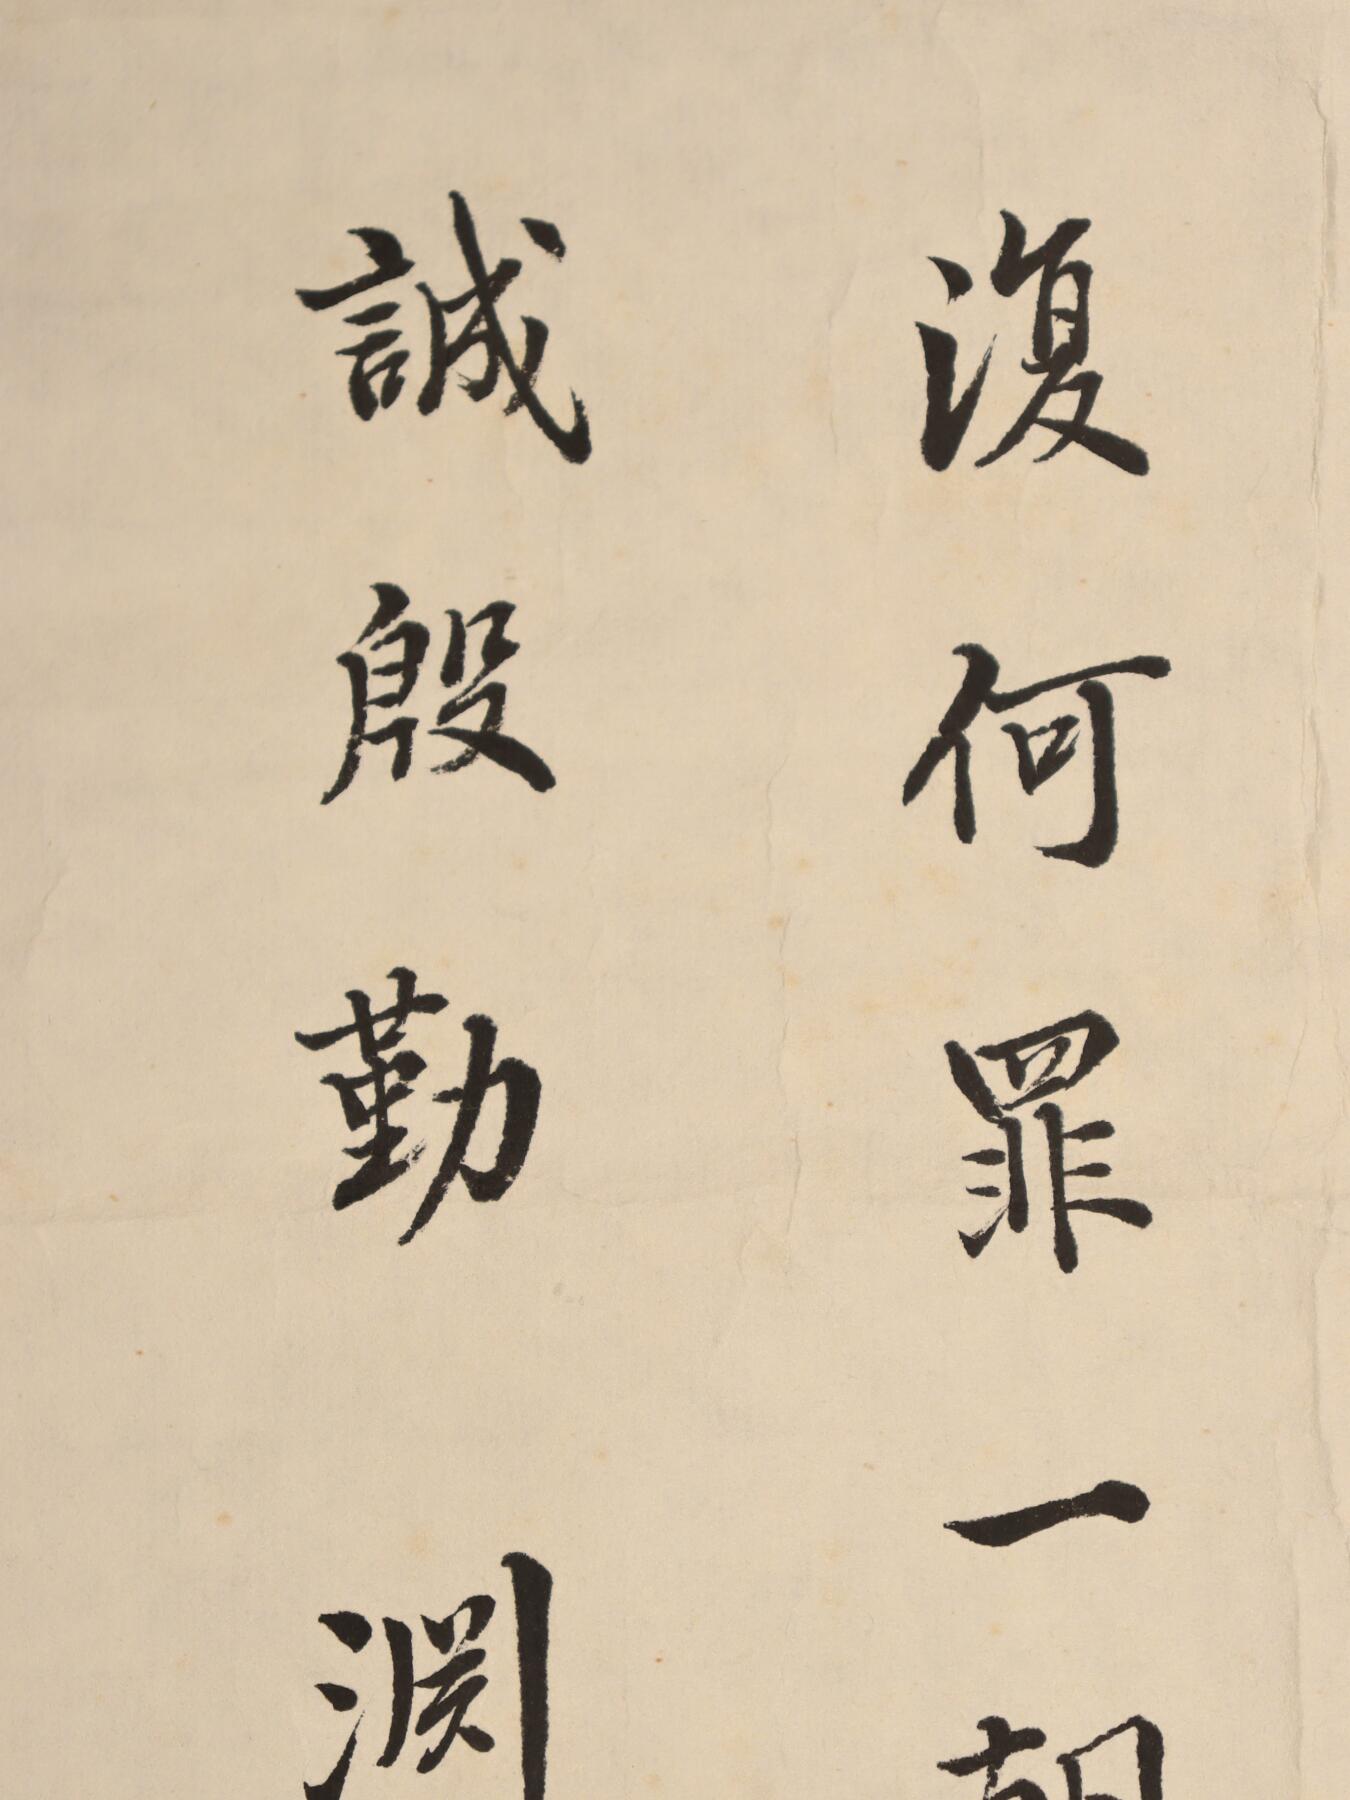 復何罪一朝
誠殷勤淵